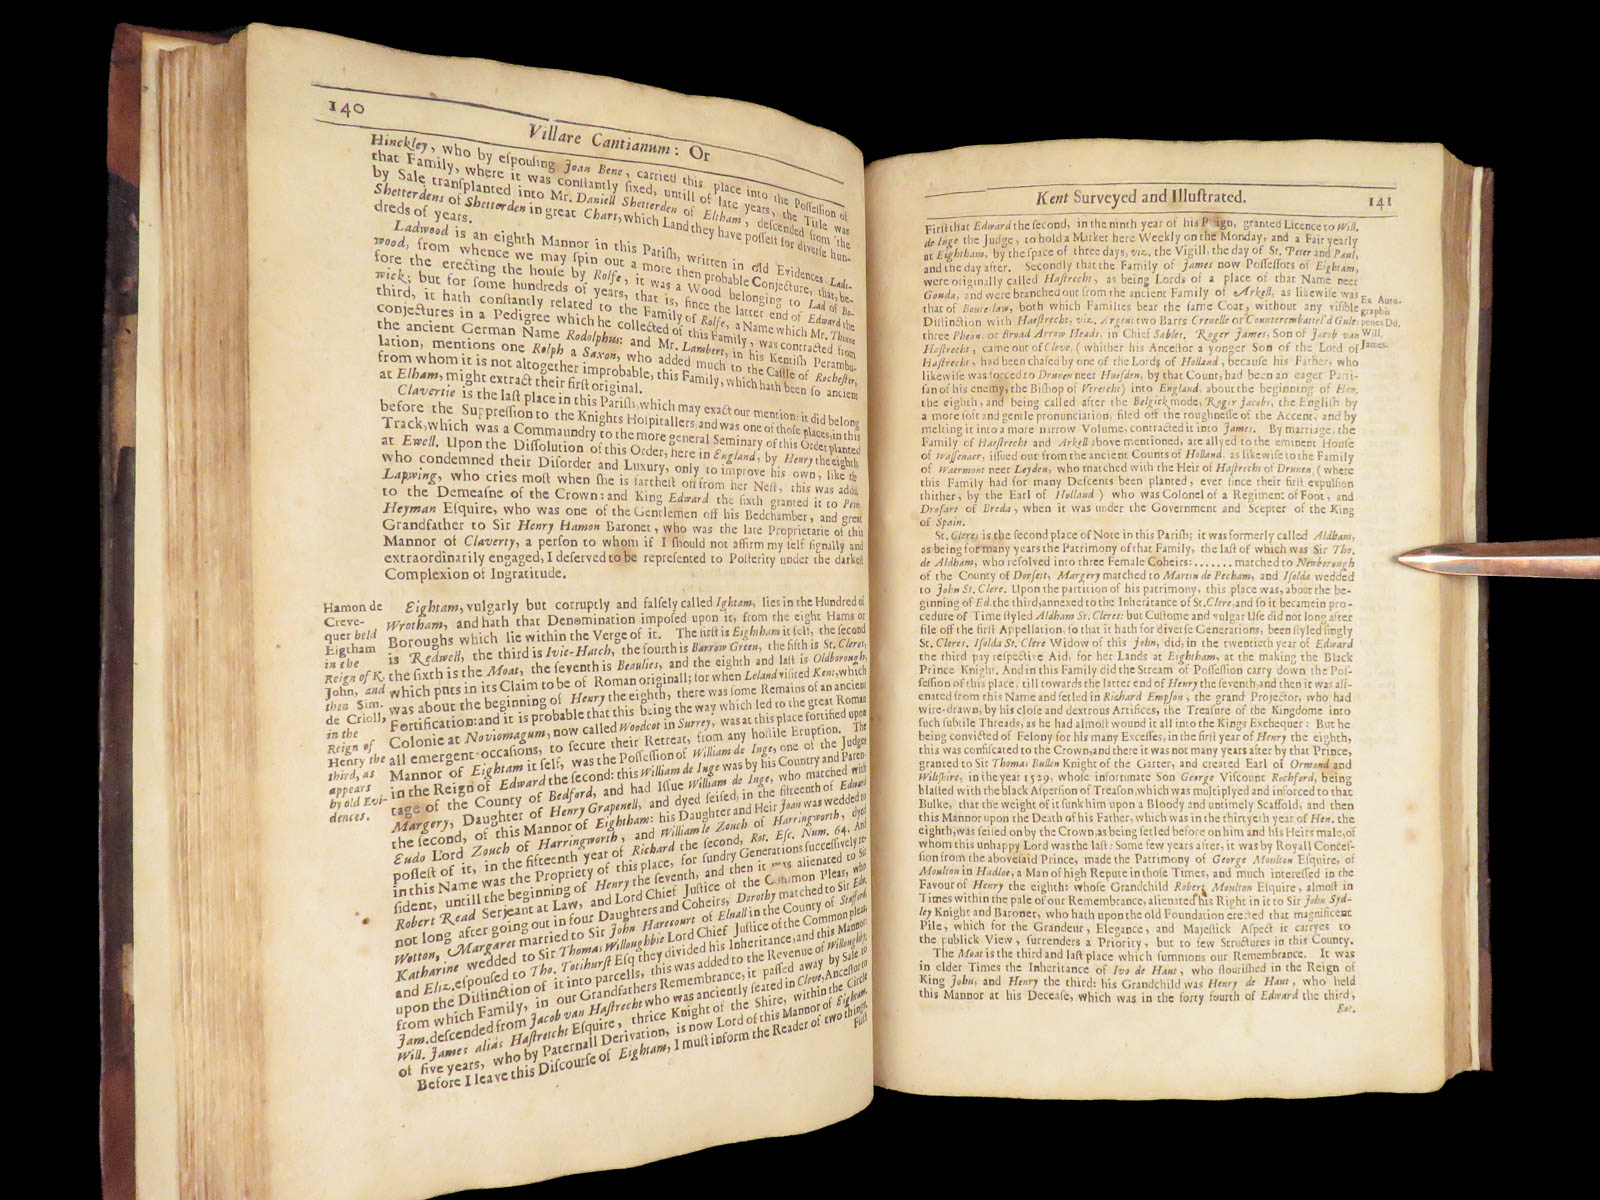 140
Villare Cantianum: Or
Hinckley, who by eſpouſing Joan Bene, carried this place into the Poſſeſſion of
that Family, where it was conſtantly fixed, untill of late years, the Title was
by Sale tranſplanted into Mr. Daniell Shetterden of Eltham, deſcended from the
Shetterdens of Shetterden in great Chart, which Land they have poſſeſt for diverſe hun-
dreds of years.
Ladwood is an eighth Mannor in this Pariſh, written in old Evidences Lade-
wood, from whence we may ſpin out a more then probable Conjecture, that, be-
fore the erecting the houſe by Rolfe, it was a Wood belonging to Lad of Bo-
wick; but for ſome hundreds of years, that is, ſince the latter end of Edward the
third, it hath conſtantly related to the Family of Rolfe, a Name which Mr. Thinne
conjectures in a Pedigree which he collected of this Family, was contracted from
the ancient German Name Rodolphus: and Mr. Lambert, in his Kentiſh Perambu-
lation, mentions one Rolph a Saxon, who added much to the Caſtle of Rocheſter,
from whom it is not altogether improbable, this Family, which hath been ſo ancient
at Elham, might extract their firſt original.
Clavertie is the laſt place in this Pariſh, which may exact our mention: it did belong
before the Suppreſſion to the Knights Hoſpitallers, and was one of thoſe places, in this
Track, which was a Commaundry to the more general Seminary of this Order planted
at Ewell. Upon the Diſſolution of this Order, here in England, by Henry the eighth
who condemned their Diſorder and Luxury, only to improve his own, like the
Lapwing, who cries moſt when ſhe is fartheſt off from her Neſt, this was added
to the Demeaſne of the Crown: and King Edward the ſixth granted it to Peter
Heyman Eſquire, who was one of the Gentlemen off his Bedchamber, and great
Grandfather to Sir Henry Hamon Baronet, who was the late Proprietarie of this
Mannor of Claverty, a perſon to whom if I ſhould not affirm my ſelf ſignally and
extraordinarily engaged, I deſerved to be repreſented to Poſterity under the darkeſt
Complexion of Ingratitude.
Hamon de
Creve-
quer held
Eigtham
in the
Reign of K.
John, and
then Sim.
de Crioll,
in the
Reign of
Henry the
third, as
appears
by old Evi-
dences.
Eightam, vulgarly but corruptly and falſely called Ightam, lies in the Hundred of
Wrotham, and hath that Denomination impoſed upon it, from the eight Hams or
Boroughs which lie within the Verge of it. The firſt is Eightham it ſelf, the ſecond
is Redwell, the third is Ivie-Hatch, the fourth is Barrow Green, the fifth is St. Cleres,
the ſixth is the Moat, the ſeventh is Beaulies, and the eighth and laſt is Oldborough,
which puts in its Claim to be of Roman originall; for when Leland viſited Kent, which
was about the beginning of Henry the eighth, there was ſome Remains of an ancient
Fortification: and it is probable that this being the way which led to the great Roman
Colonie at Noviomagum, now called Woodcot in Surrey, was at this place fortified upon
all emergent occaſions, to ſecure their Retreat, from any hoſtile Eruption. The
Mannor of Eightam it ſelf, was the Poſſeſſion of William de Inge, one of the Judges
in the Reign of Edward the ſecond: this William de Inge was by his Country and Paren-
tage of the County of Bedford, and had Iſſue William de Inge, who matched with
Margery, Daughter of Henry Grapenell, and dyed ſeiſed, in the fifteenth of Edward
the ſecond, of this Mannor of Eightham: his Daughter and Heir Joan was wedded to
Eudo Lord Zouch of Harringworth, and William le Zouch of Harringworth, dyed
poſſeſt of it, in the fifteenth year of Richard the ſecond, Rot. Eſc. Num. 64. And
in this Name was the Propriety of this place, for ſundry Generations ſucceſſively re-
ſident, untill the beginning of Henry the ſeventh, and then it was alienated to Sir
Robert Read Serjeant at Law, and Lord Chief Juſtice of the Common Pleas, who
not long after going out in four Daughters and Coheirs, Dorothy matched to Sir Edw.
Wotton, Margaret married to Sir John Harecourt of Elnall in the County of Stafford,
Katharine wedded to Sir Thomas Willoughbie Lord Chief Juſtice of the Common pleas,
and Eliz. eſpouſed to Tho. Totihurſt Eſq; they divided his Inheritance, and this Mannor
upon the Diſtinction of it into parcells, this was added to the Revenue of Willoughby,
from which Family, in our Grandfathers Remembrance, it paſſed away by Sale to
Jam. deſcended from Jacob van Haſtrecht who was anciently ſeated in Cleve, Anceſtor to
Will. James alias Haſtretcht Eſquire, thrice Knight of the Shire, within the Circle
of five years, who by Paternall Derivation, is now Lord of this Mannor of Eightam.
Before I leave this Diſcourſe of Eightam, I muſt inform the Reader of two things,
Firſt
Kent Surveyed and Illuſtrated.
141
Firſt that Edward the ſecond, in the ninth year of his Reign, granted Licence to Will.
de Inge the Judge, to hold a Market here Weekly on the Monday, and a Fair yearly
at Eightham, by the ſpace of three days, viz. the Vigill, the day of St. Peter and Paul,
and the day after. Secondly that the Family of James now Poſſeſſors of Eightam,
were originally called Haſtrecht, as being Lords of a place of that Name neer
Gouda, and were branched out from the ancient Family of Arkell, as likewiſe was
that of Bouteſlaw, both which Families bear the ſame Coat, without any viſible
Diſtinction with Haeſtrecht, viz. Argent two Barrs Crenelle or Counterembattel'd Gules
three Pheon. or Broad Arrow Heads, in Chief Sables. Roger James, Son of Jacob van
Haſtrecht, came out of Cleve, (whither his Anceſtor a yonger Son of the Lord of
Haſtrecht, had been chaſed by one of the Lords of Holland, becauſe his Father, who
likewiſe was forced to Drunen neer Hueſden, by that Count, had been an eager Parti-
ſan of his enemy, the Biſhop of Vtretcht) into England, about the beginning of Hen.
the eighth, and being called after the Belgick mode, Roger Jacobs, the Engliſh by
a more ſoft and gentle pronunciation, filed off the roughneſſe of the Accent, and by
melting it into a more narrow Volume, contracted it into James. By marriage, the
Family of Haeſtrecht and Arkell above mentioned, are allyed to the eminent Houſe
of Waſſenaer, iſſued out from the ancient Counts of Holland, as likewiſe to the Family
of Waermont neer Leyden, who matched with the Heir of Haſtrecht of Drunen, (where
this Family had for many Deſcents been planted, ever ſince their firſt expulſion
thither, by the Earl of Holland) who was Colonel of a Regiment of Foot, and
Droſart of Breda, when it was under the Government and Scepter of the King
of Spain.
Ex Auto-
graphis
penes Dd.
Will.
James.
St. Cleres is the ſecond place of Note in this Pariſh; it was formerly called Aldham,
as being for many years the Patrimony of that Family, the laſt of which was Sir Tho.
de Aldham, who reſolved into three Female Coheirs: ....... matched to Newborough
of the County of Dorſeit, Margery matched to Martin de Pecham, and Iſolda wedded
to John St. Clere. Upon the partition of his patrimony, this place was, about the be-
ginning of Ed. the third, annexed to the Inheritance of St. Clere, and ſo it became in pro-
cedure of Time ſtyled Aldham St. Cleres: but Cuſtome and vulgar Uſe did not long after
file off the firſt Appellation, ſo that it hath for diverſe Generations, been ſtyled ſingly
St. Cleres. Iſolda St. Clere Widow of this John, did, in the twentieth year of Edward
the third pay reſpective Aid, for her Lands at Eightham, at the making the Black
Prince Knight. And in this Family did the Stream of Poſſeſſion carry down the Poſ-
ſeſſion of this place, till towards the latter end of Henry the ſeventh, and then it was ali-
enated from this Name and ſetled in Richard Empſon, the grand Projector, who had
wire-drawn, by his cloſe and dextrous Artifices, the Treaſure of the Kingdome into
ſuch ſubtile Threads, as he had almoſt wound it all into the Kings Exchequer: But he
being convicted of Felony for his many Exceſſes, in the firſt year of Henry the eighth,
this was confiſcated to the Crown, and there it was not many years after by that Prince,
granted to Sir Thomas Bullen Knight of the Garter, and created Earl of Ormond and
Wiltſhire, in the year 1529. whoſe infortunate Son George Viſcount Rochford, being
blaſted with the black Aſperſion of Treaſon, which was multiplyed and inforced to that
Bulke, that the weight of it ſunk him upon a Bloody and untimely Scaffold, and then
this Mannor upon the Death of his Father, which was in the thirtyeth year of Hen. the
eighth, was ſeiſed on by the Crown, as being ſetled before on him and his Heirs male, of
whom this unhappy Lord was the laſt: Some few years after, it was by Royall Conceſ-
ſion from the aboveſaid Prince, made the Patrimony of George Moulton Eſquire, of
Moulton in Hadloe, a Man of high Repute in thoſe Times, and much intereſſed in the
Favour of Henry the eighth: whoſe Grandchild Robert Moulton Eſquire, almoſt in
Times within the pale of our Remembrance, alienated his Right in it to Sir John Syd-
ley Knight and Baronet, who hath upon the old Foundation erected that magnificent
Pile, which for the Grandeur, Elegance, and Majeſtick Aſpect it carryes to
the publick View, ſurrenders a Priority, but to few Structures in this County.
The Moat is the third and laſt place which ſummons our Remembrance. It was
in elder Times the Inheritance of Ivo de Haut, who flouriſhed in the Reign of
King John, and Henry the third: his Grandchild was Henry de Haut, who held
this Mannor at his Deceaſe, which was in the forty fourth of Edward the third,
Rot.